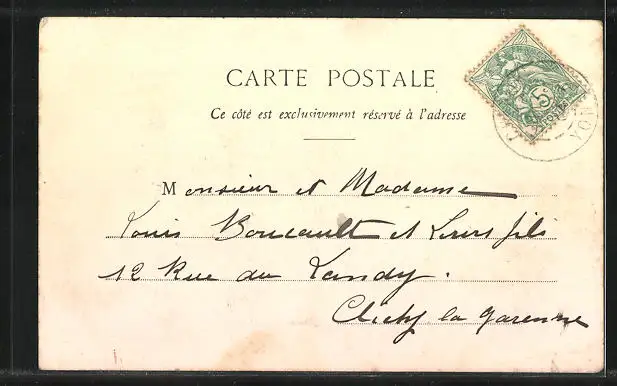 CARTE POSTALE
Ce côté est exclusivement réservé à l'adresse
Monsieur et Madame
Louis Boucault et Leurs fils
12 Rue du Landy.
Clichy la garenne
5c